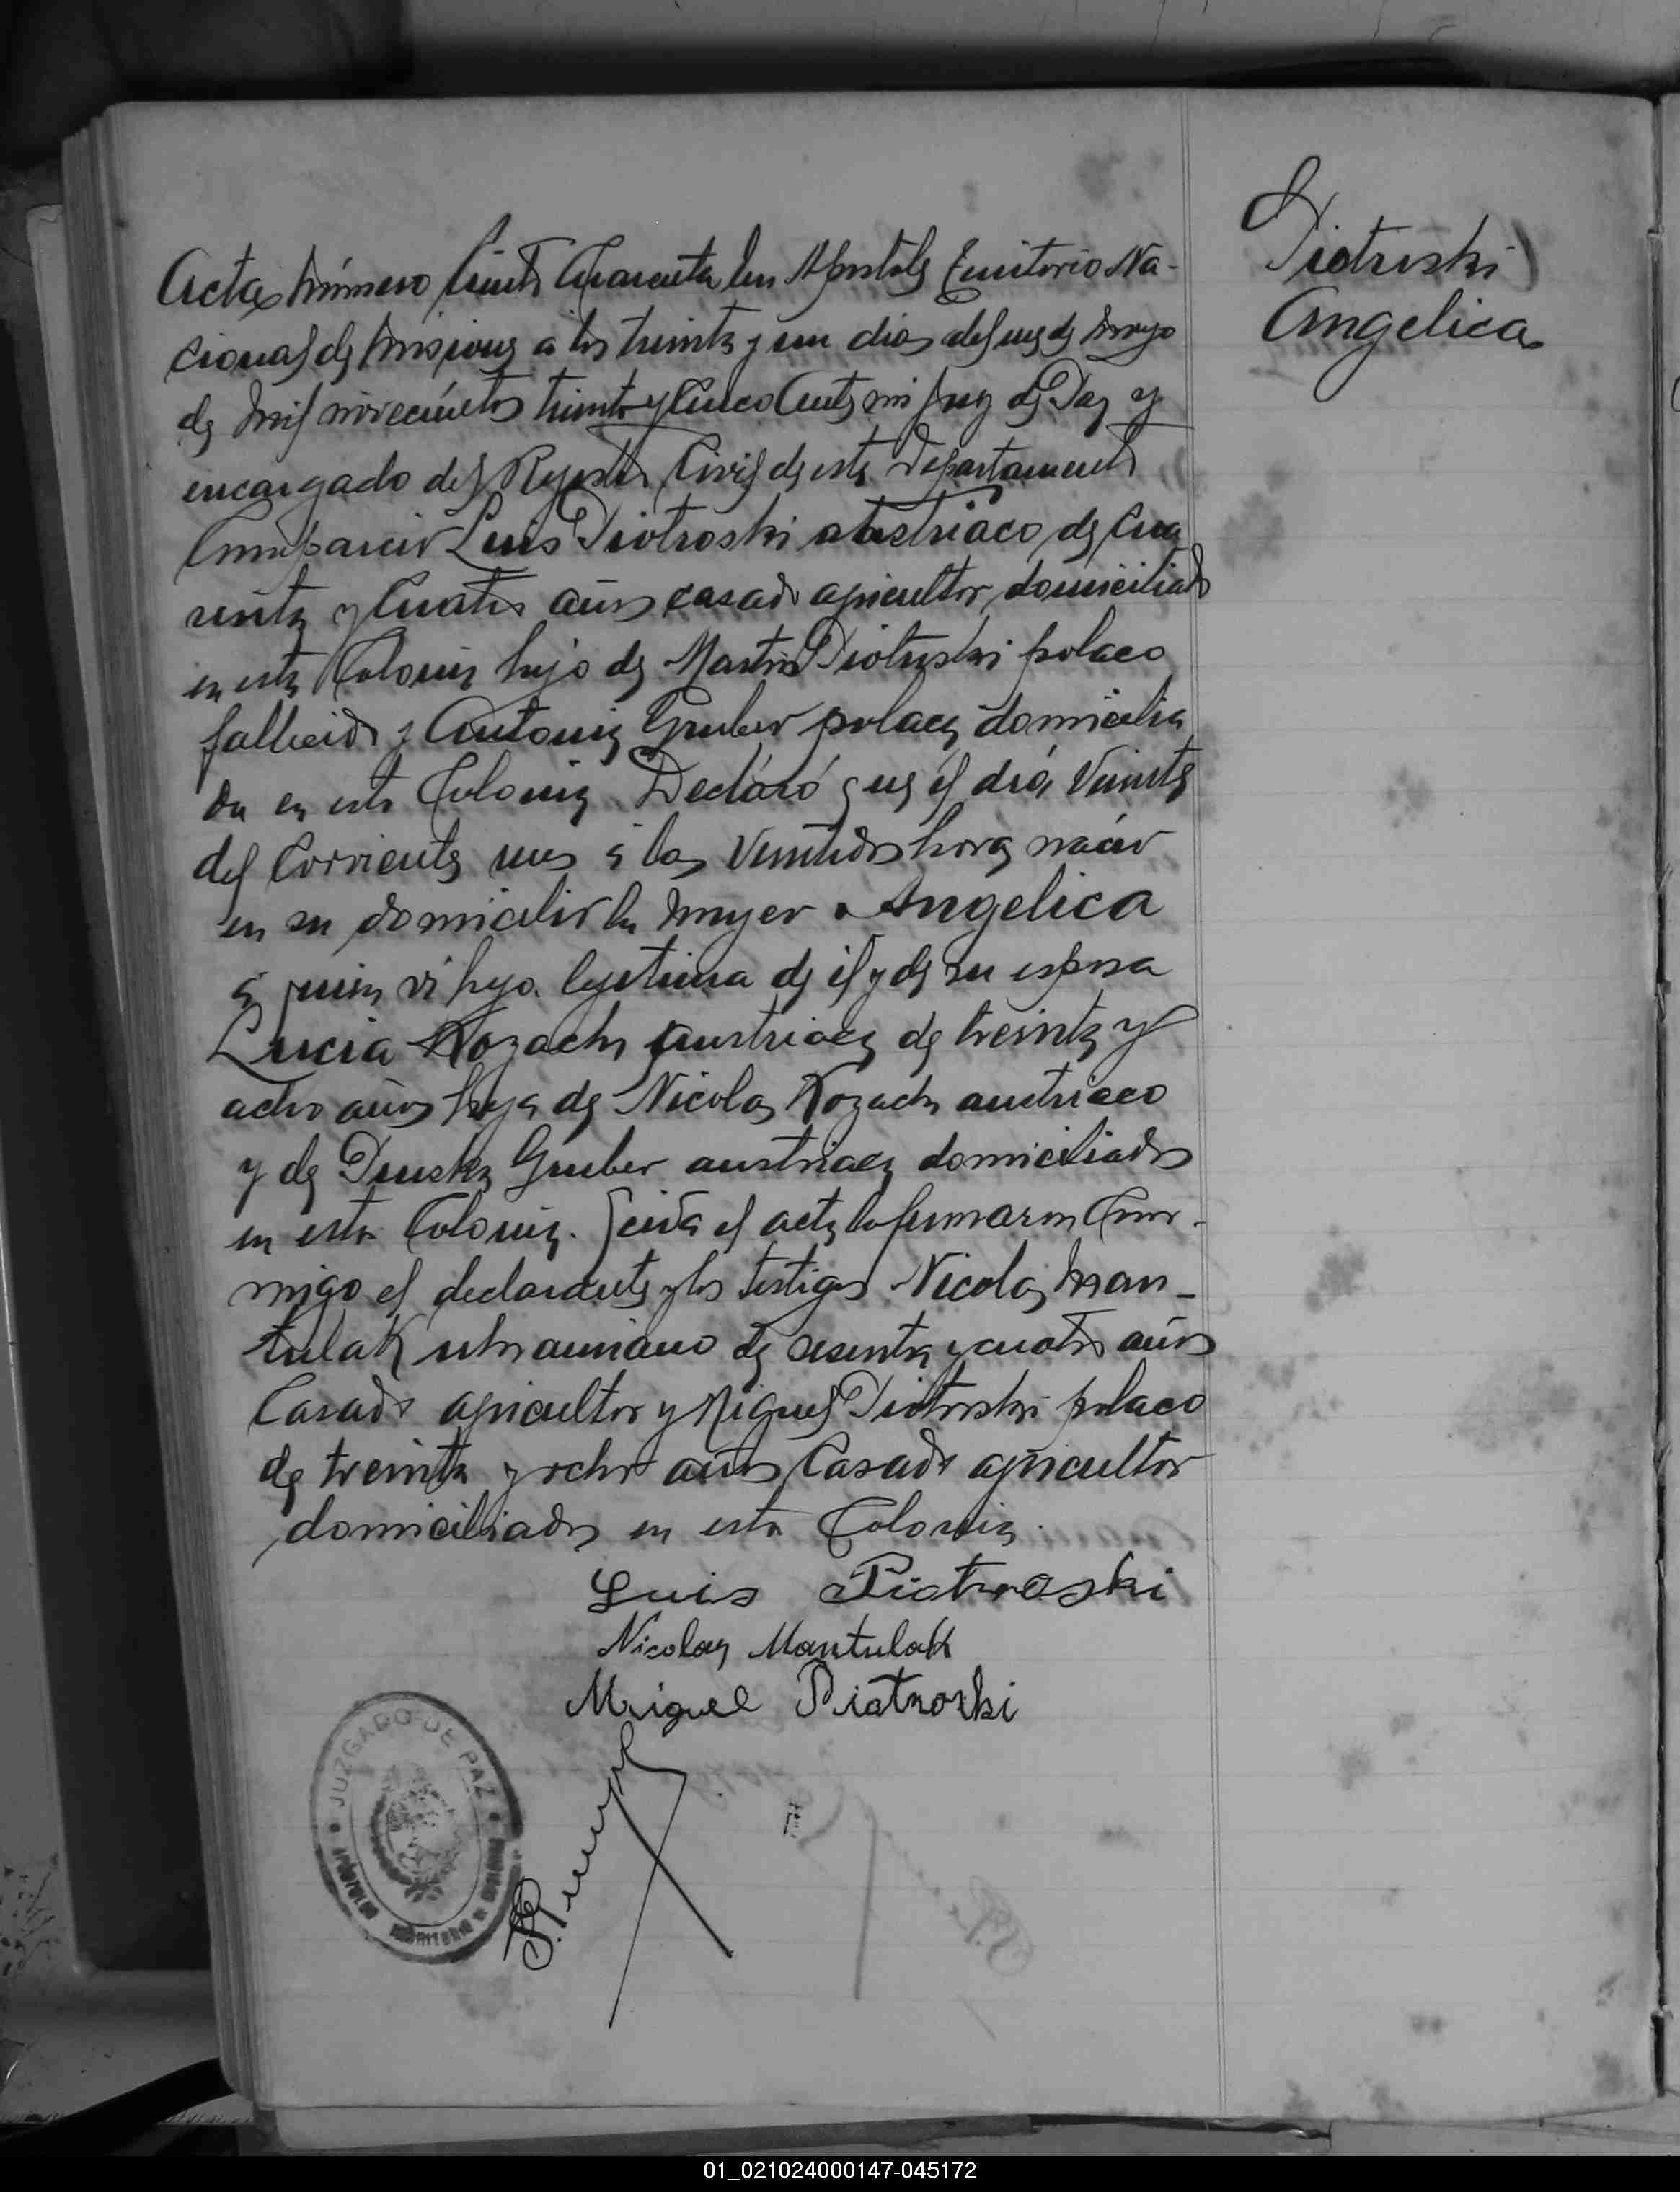 Piotroski
Angelica
Acta Número Ciento Cuarenta En Apostoles Territorio Na-
cional de Misiones a los treinta y un dias del mes de Mayo
de mil novecientos treinta y Cinco Ante mi Juez de Paz y
encargado del Registro Civil de este Departamento
Compareció Luis Piotroski austriaco de Cua
renta y Cuatro años casado agricultor domiciliado
en esta Colonia hijo de Martin Piotroski polaco
fallecido y Antonia Gruber polaca domicilia
da en esta Colonia Declaró que el día Veinte
del Corriente mes a las Veintidos horas nació
en su domicilio la mujer Angelica
a quien vi hija legitima de él y de su esposa
Lucia Kozachy austriaca de treinta y
ocho años hija de Nicolas Kozachy austriaco
y de Gruber austriaca domiciliados
en esta Colonia. Leida el acta la firmaron Con-
migo el declarante y los testigos Nicolas Man-
tulak ukraniano de sesenta y cuatro años
Casado agricultor y Miguel Piotroski polaco
de treinta y ocho años Casado agricultor
domiciliados en esta Colonia.
Luis Piotroski
Nicolas Mantulak
Miguel Piatroski
JUZGADO DE PAZ
APÓSTOLES TERRITORIO DE MISIONES
01_021024000147-045172